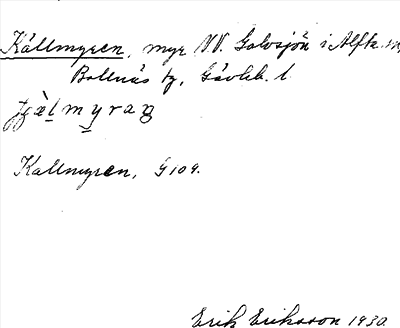 Källmyren, myr NV. Galvsjön i Alfta sn,
Bollnäs tg, Gävleb. l
Kallmyren, G 109.
Erik Eriksson 1930.